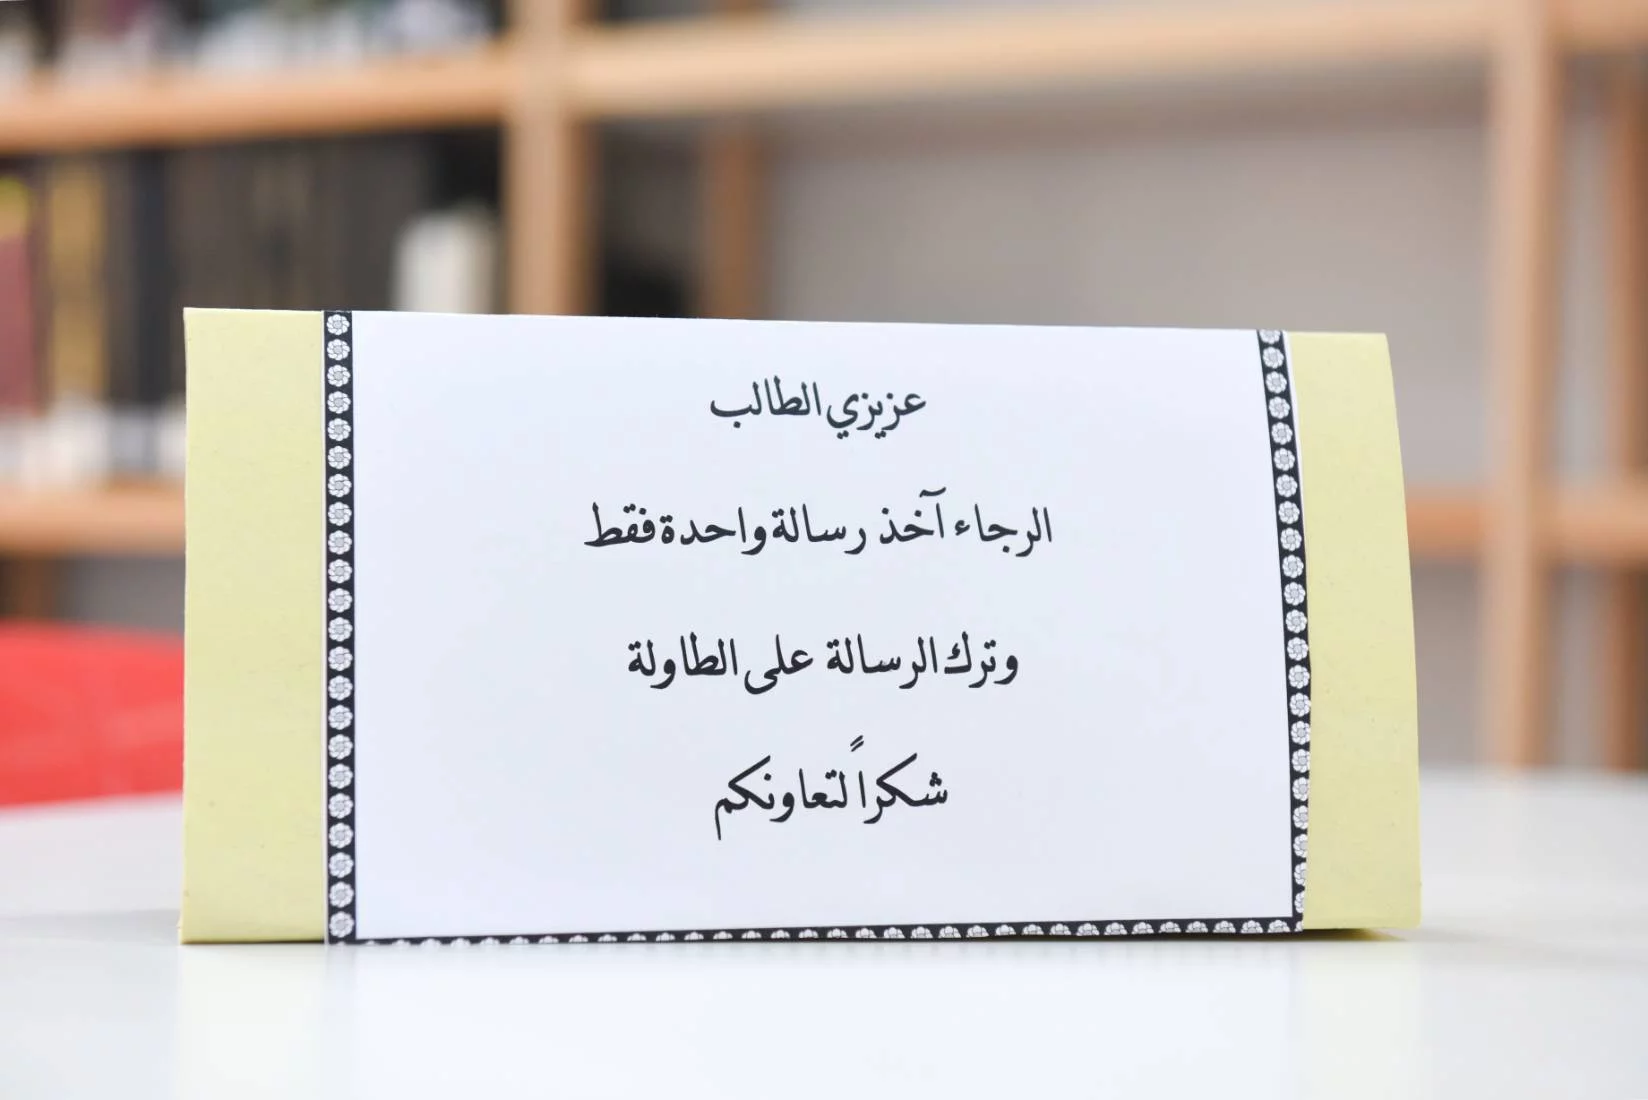 عزيزي الطالب
الرجاء آخذ رسالة واحدة فقط
وترك الرسالة على الطاولة
شكراً لتعاونكم